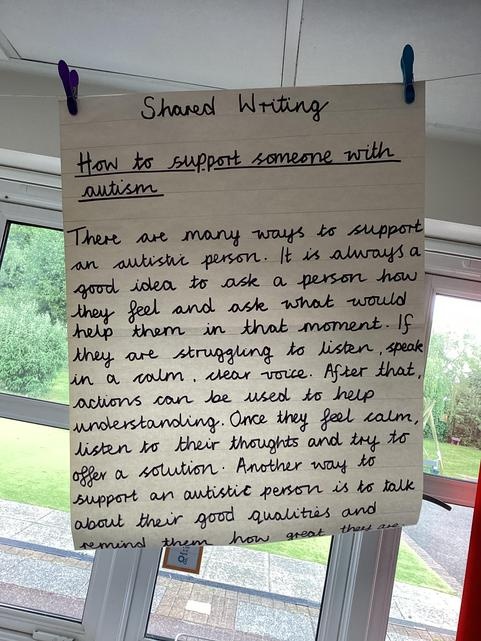 Shared Writing
How to support someone with
autism
There are many ways to support
an autistic person. It is always a
good idea to ask a person how
they feel and ask what would
help them in that moment. If
they are struggling to listen, speak
in a calm, clear voice. After that,
actions can be used to help
understanding. Once they feel calm,
listen to their thoughts and try to
offer a solution. Another way to
support an autistic person is to talk
about their good qualities and
remind them how great they are.